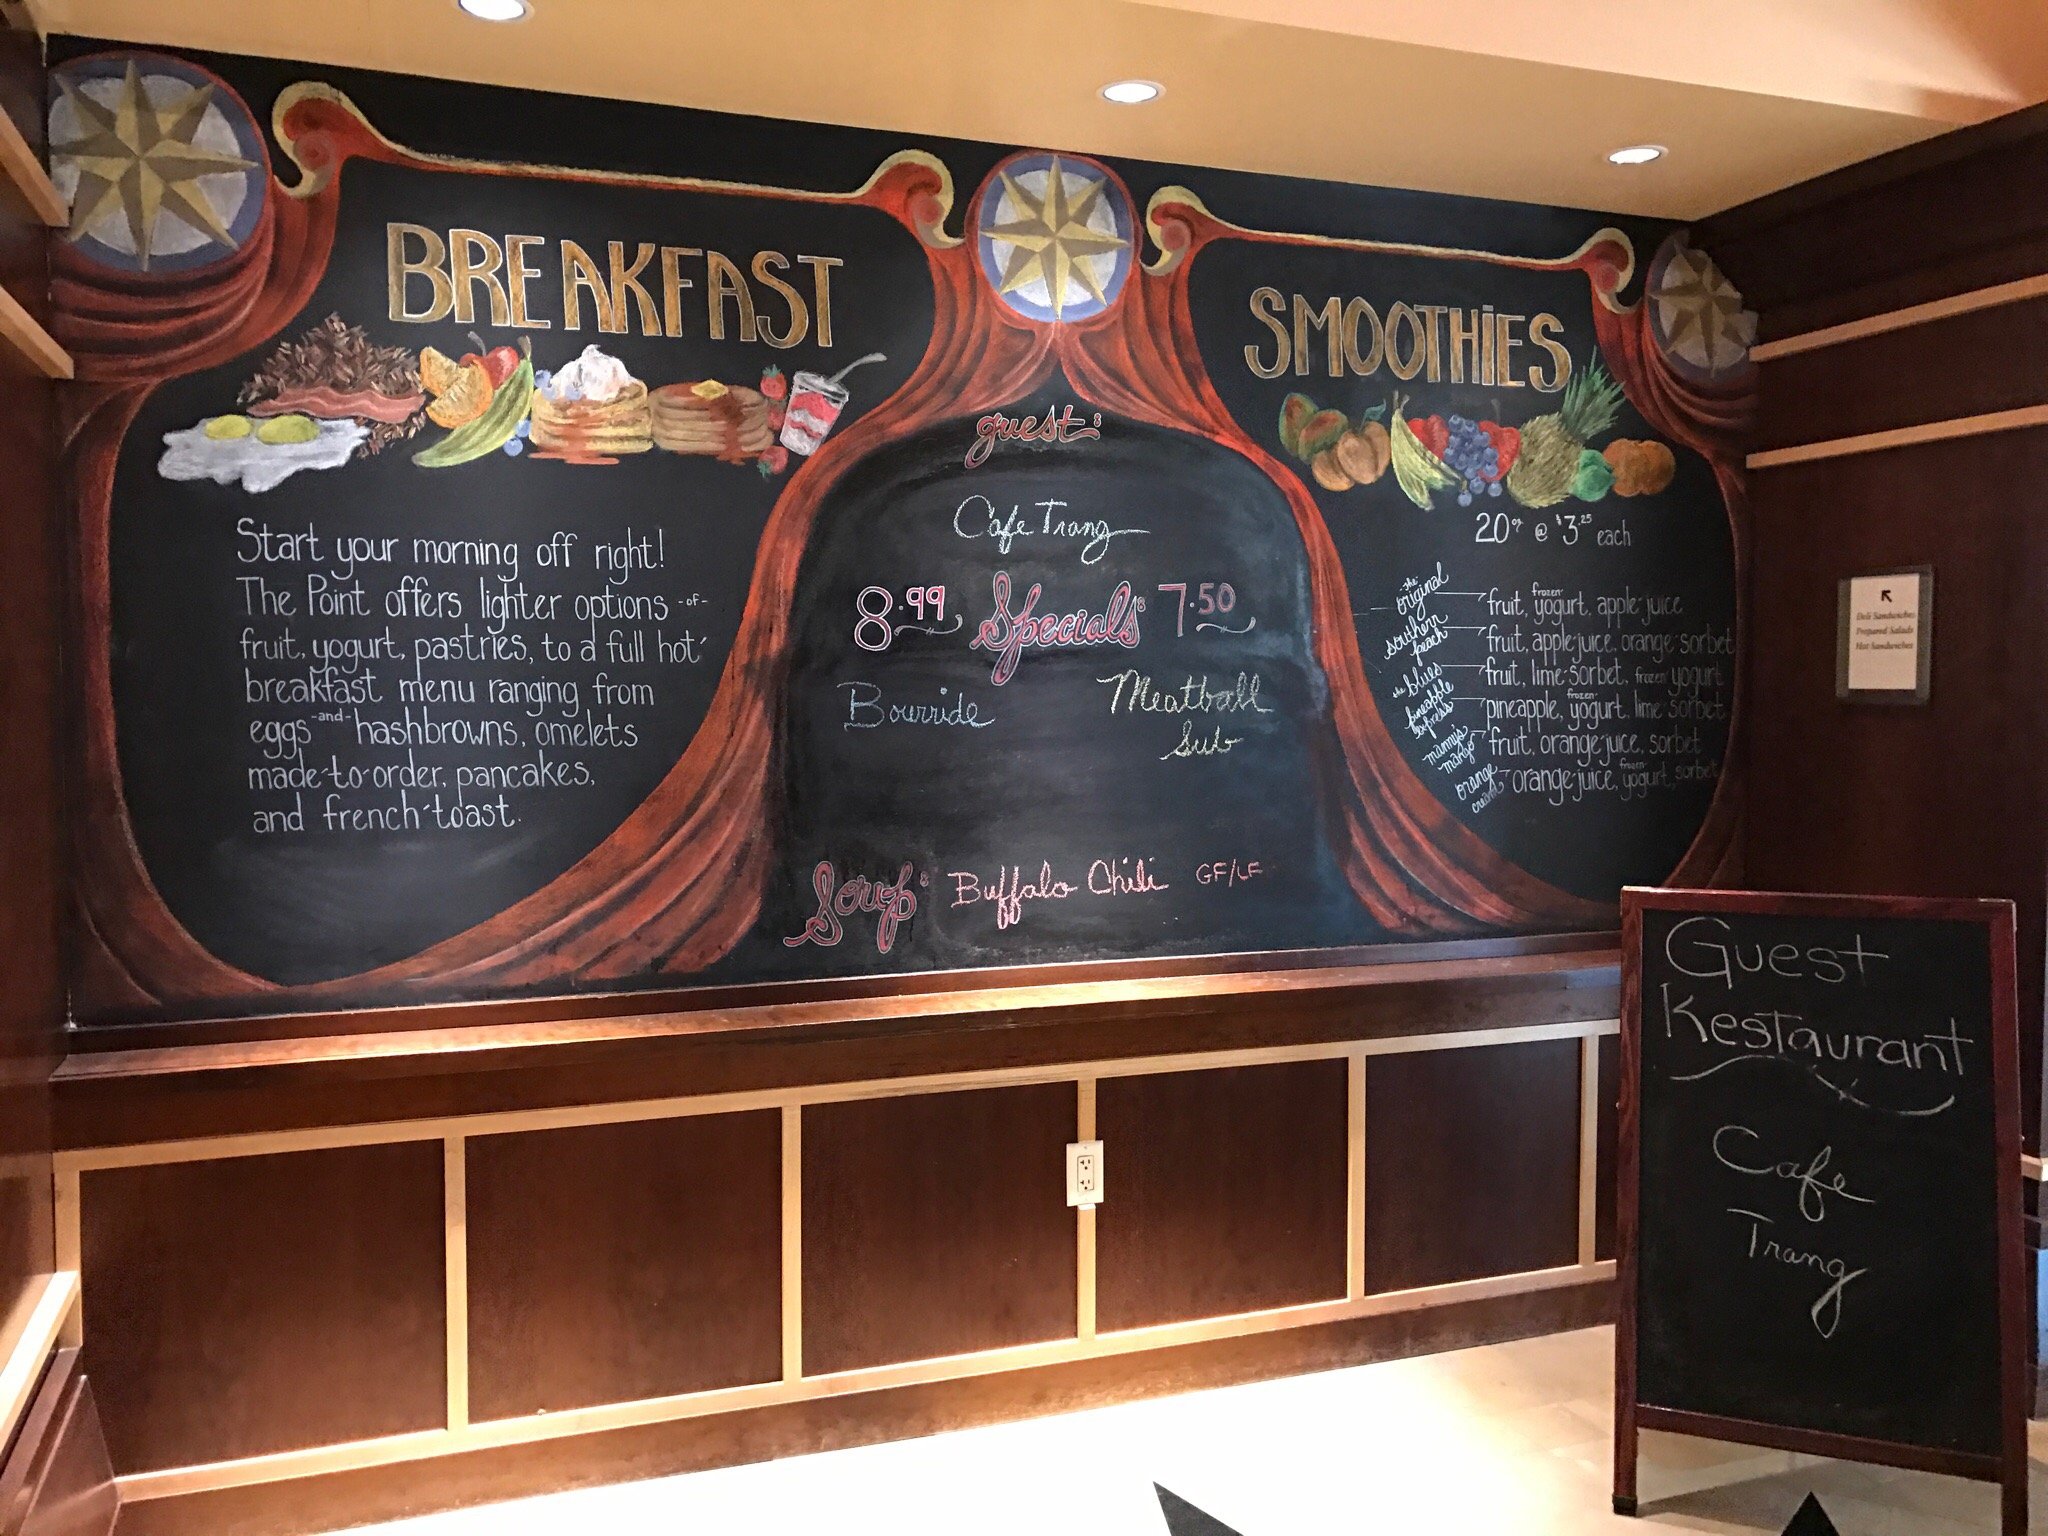 BREAKFAST
Start your morning off right!
The Point offers lighter options -of-
fruit, yogurt, pastries, to a full hot-
breakfast menu ranging from
eggs -and- hashbrowns, omelets
made-to-order, pancakes,
and french-toast.
guest:
Cafe Trang
8.99 Specials: 7.50
Bourride
Meatball
Sub
Soup: Buffalo Chili GF/LF
SMOOTHIES
20oz @ $3.25 each
the original fruit, frozen yogurt, apple-juice
southern peach fruit, apple-juice, orange sorbet
the blues fruit, lime-sorbet, frozen yogurt
pineapple express pineapple, frozen yogurt, lime-sorbet
manny's mango fruit, orange-juice, sorbet
orange cream orange-juice, frozen yogurt, sorbet
Deli Sandwiches
Prepared Salads
Hot Sandwiches
Guest
Restaurant
Cafe
Trang